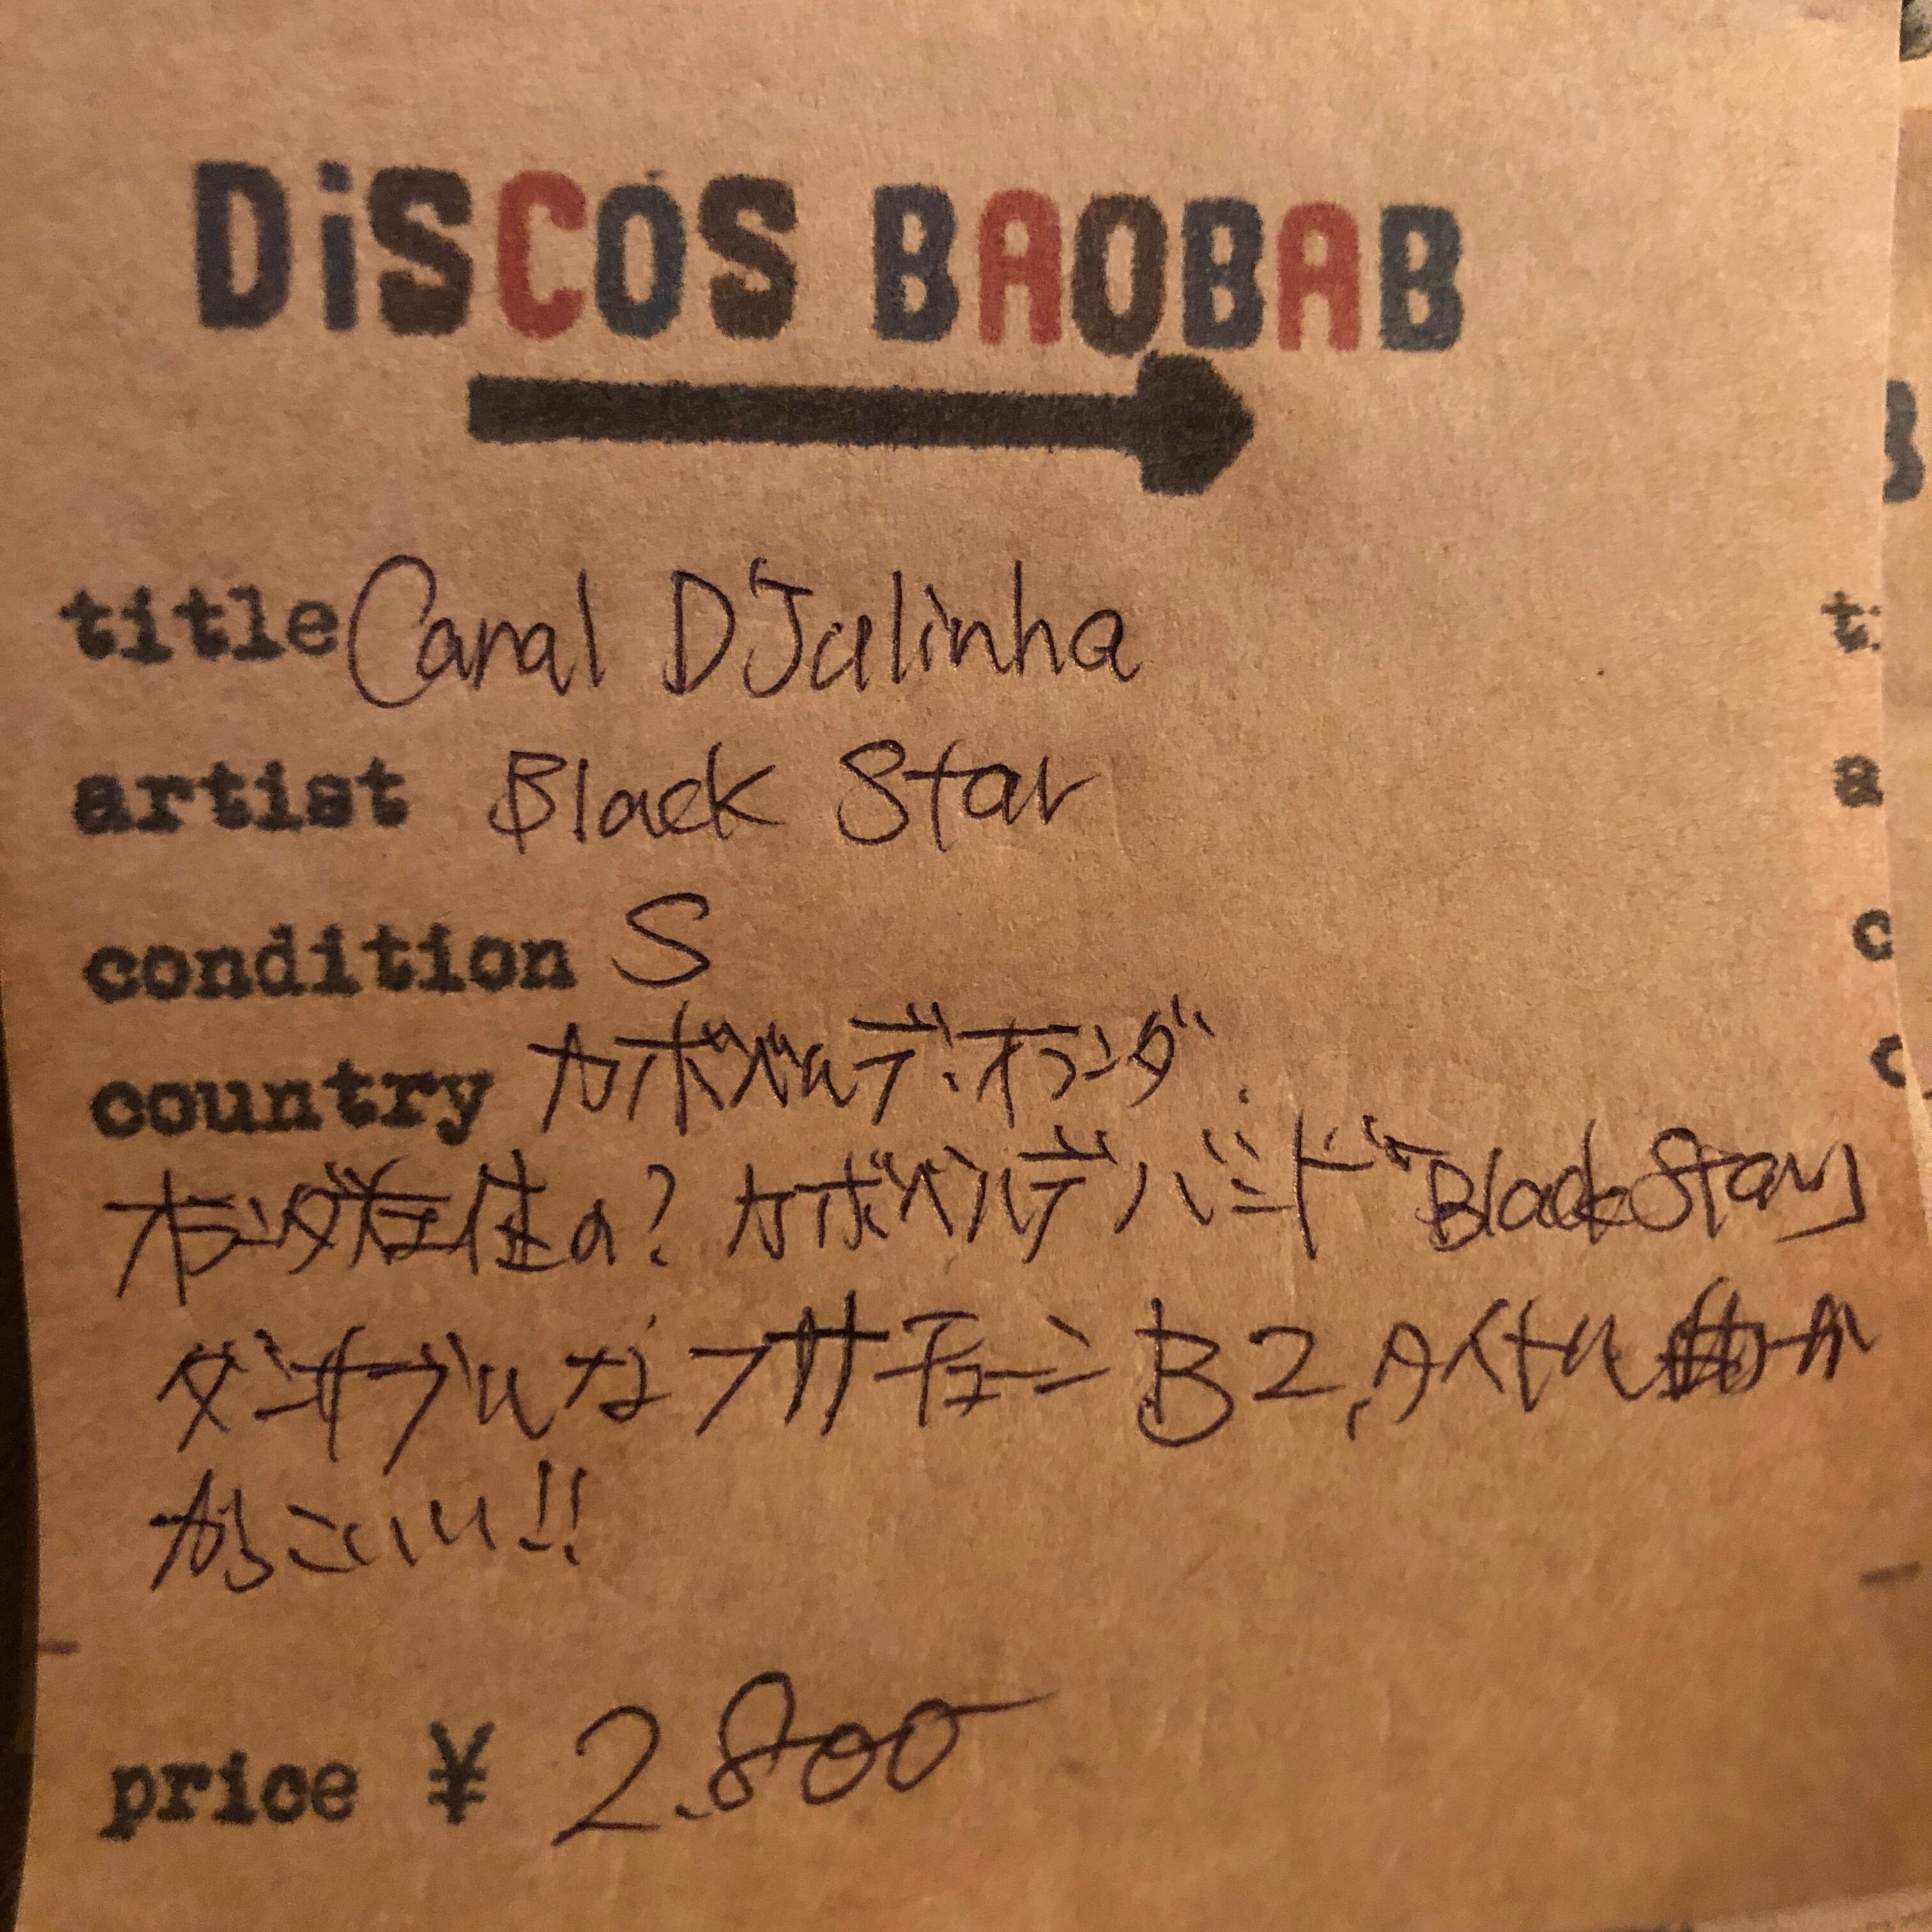 DiSCOS BAOBAB
title Canal D'Julinha
artist Black Star
condition S
country カボベルデ・オランダ.
オランダ在住の? カボベルデバンド Black Star」
ダンサブルなフナナチューンB2,タイトル曲が
かっこいい!!
price ¥ 2.800